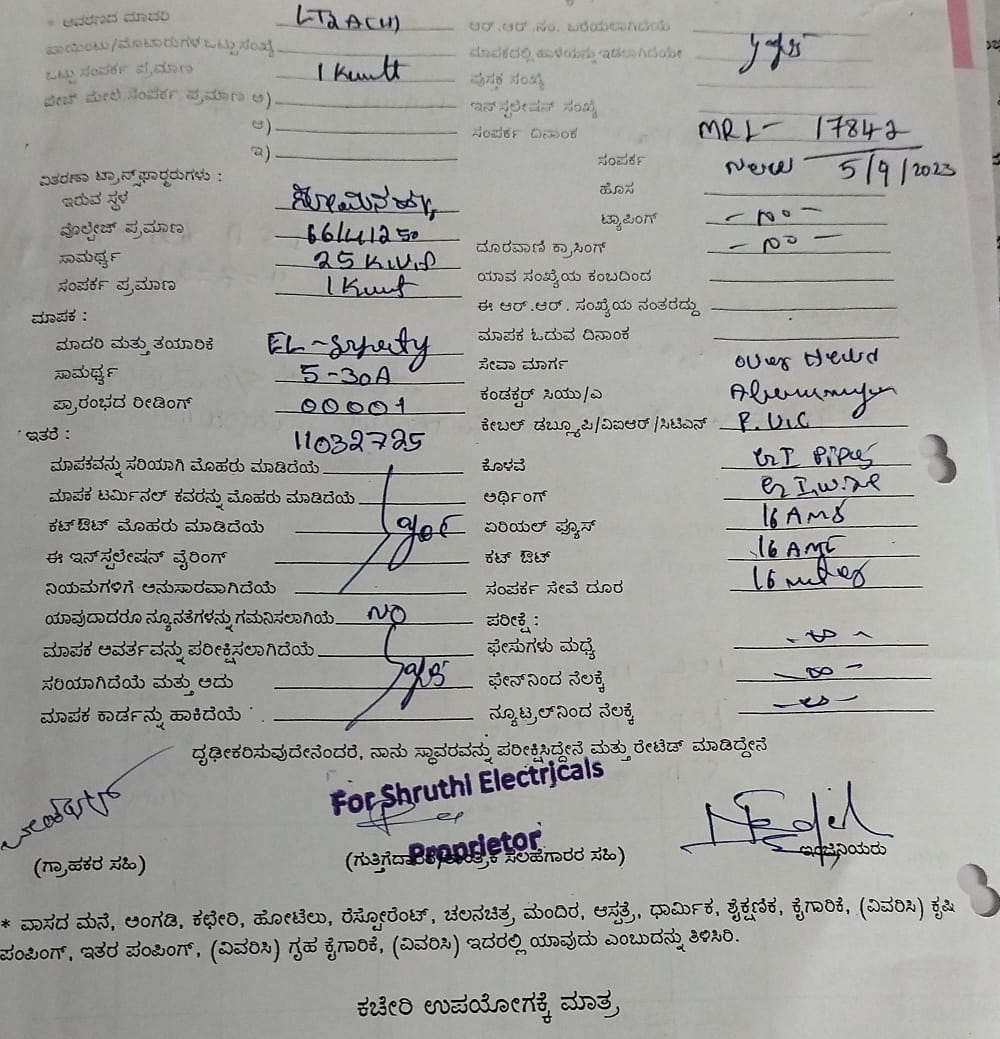 * ಆವರಣದ ಮಾದರಿ LT2A(ii) ಆರ್.ಆರ್.ನಂ. ಬರೆಯಲಾಗಿದೆಯೆ
ಪಾಯಿಂಟು/ಮೋಟಾರುಗಳ ಒಟ್ಟು ಸಂಖ್ಯೆ ಮಾಪಕದಲ್ಲಿ ಹಾಳೆಯನ್ನು ಇಡಲಾಗಿದೆಯೇ yes
ಒಟ್ಟು ಸಂಪರ್ಕ ಪ್ರಮಾಣ 1 Kwatt ಪುಸ್ತಕ ಸಂಖ್ಯೆ
ಪೇಟ್ ಮೇಲೆ ಸಂಪರ್ಕ ಪ್ರಮಾಣ ಅ) ಇನ್‌ಸ್ಟಲೇಷನ್ ಸಂಖ್ಯೆ
ಆ) ಸಂಪರ್ಕ ದಿನಾಂಕ MRL- 17842
ಇ) ಸಂಪರ್ಕ New 5/9/2023
ವಿತರಣಾ ಟ್ರಾನ್ಸ್‌ಫಾರ್ಮರುಗಳು : ಹೊಸ
ಇರುವ ಸ್ಥಳ ಟ್ಯಾಪಿಂಗ್ - no -
ವೊಲ್ಟೇಜ್ ಪ್ರಮಾಣ ದೂರವಾಣಿ ಕ್ರಾಸಿಂಗ್ - no -
ಸಾಮರ್ಥ್ಯ 25 K.V.A ಯಾವ ಸಂಖ್ಯೆಯ ಕಂಬದಿಂದ
ಸಂಪರ್ಕ ಪ್ರಮಾಣ 1 Kwatt ಈ ಆರ್.ಆರ್. ಸಂಖ್ಯೆಯ ನಂತರದ್ದು
ಮಾಪಕ : ಮಾಪಕ ಓದುವ ದಿನಾಂಕ
ಮಾದರಿ ಮತ್ತು ತಯಾರಿಕೆ ಸೇವಾ ಮಾರ್ಗ over Head
ಸಾಮರ್ಥ್ಯ 5-30A ಕಂಡಕ್ಟರ್ ಸಿಯು/ಎ
ಪ್ರಾರಂಭದ ರೀಡಿಂಗ್ 00001 ಕೇಬಲ್ ಡಬ್ಲ್ಯೂಪಿ/ವಿಐಆರ್/ಸಿಟಿಎಸ್ P.V.C
ಇತರೆ : 11032725
ಮಾಪಕವನ್ನು ಸರಿಯಾಗಿ ಮೊಹರು ಮಾಡಿದೆಯೆ ಕೊಳವೆ GI Pipe
ಮಾಪಕ ಟರ್ಮಿನಲ್ ಕವರನ್ನು ಮೊಹರು ಮಾಡಿದೆಯೆ ಅರ್ಥಿಂಗ್ GI wire
ಕಟ್‌ಔಟ್ ಮೊಹರು ಮಾಡಿದೆಯೆ yes ಏರಿಯಲ್ ಫ್ಯೂಸ್ 16 AMS
ಈ ಇನ್‌ಸ್ಟಲೇಷನ್ ವೈರಿಂಗ್ ಕಟ್ ಔಟ್ 16 AMS
ನಿಯಮಗಳಿಗೆ ಅನುಸಾರವಾಗಿದೆಯೆ ಸಂಪರ್ಕ ಸೇವೆ ದೂರ 16
ಯಾವುದಾದರೂ ನ್ಯೂನತೆಗಳನ್ನು ಗಮನಿಸಲಾಗಿಯೆ NO ಪರೀಕ್ಷೆ :
ಮಾಪಕ ಅವರ್ತವನ್ನು ಪರೀಕ್ಷಿಸಲಾಗಿದೆಯೆ ಫೇಸುಗಳು ಮಧ್ಯೆ
ಸರಿಯಾಗಿದೆಯೆ ಮತ್ತು ಅದು yes ಫೇಸ್‌ನಿಂದ ನೆಲಕ್ಕೆ
ಮಾಪಕ ಕಾರ್ಡನ್ನು ಹಾಕಿದೆಯೆ ನ್ಯೂಟ್ರಲ್‌ನಿಂದ ನೆಲಕ್ಕೆ
ದೃಢೀಕರಿಸುವುದೇನೆಂದರೆ, ನಾನು ಸ್ಥಾವರವನ್ನು ಪರೀಕ್ಷಿಸಿದ್ದೇನೆ ಮತ್ತು ರೇಟೆಡ್ ಮಾಡಿದ್ದೇನೆ
For Shruthi Electricals
Proprietor
(ಗ್ರಾಹಕರ ಸಹಿ) ಸಲಹೆಗಾರರ ಸಹಿ) ಇಂಜಿನಿಯರು
* ವಾಸದ ಮನೆ, ಅಂಗಡಿ, ಕಛೇರಿ, ಹೋಟೆಲು, ರೆಸ್ಟೋರೆಂಟ್, ಚಲನಚಿತ್ರ ಮಂದಿರ, ಆಸ್ಪತ್ರೆ, ಧಾರ್ಮಿಕ, ಶೈಕ್ಷಣಿಕ, ಕೈಗಾರಿಕೆ, (ವಿವರಿಸಿ) ಕೃಷಿ
ಪಂಪಿಂಗ್, ಇತರ ಪಂಪಿಂಗ್, (ವಿವರಿಸಿ) ಗೃಹ ಕೈಗಾರಿಕೆ, (ವಿವರಿಸಿ) ಇದರಲ್ಲಿ ಯಾವುದು ಎಂಬುದನ್ನು ತಿಳಿಸಿರಿ.
ಕಚೇರಿ ಉಪಯೋಗಕ್ಕೆ ಮಾತ್ರ